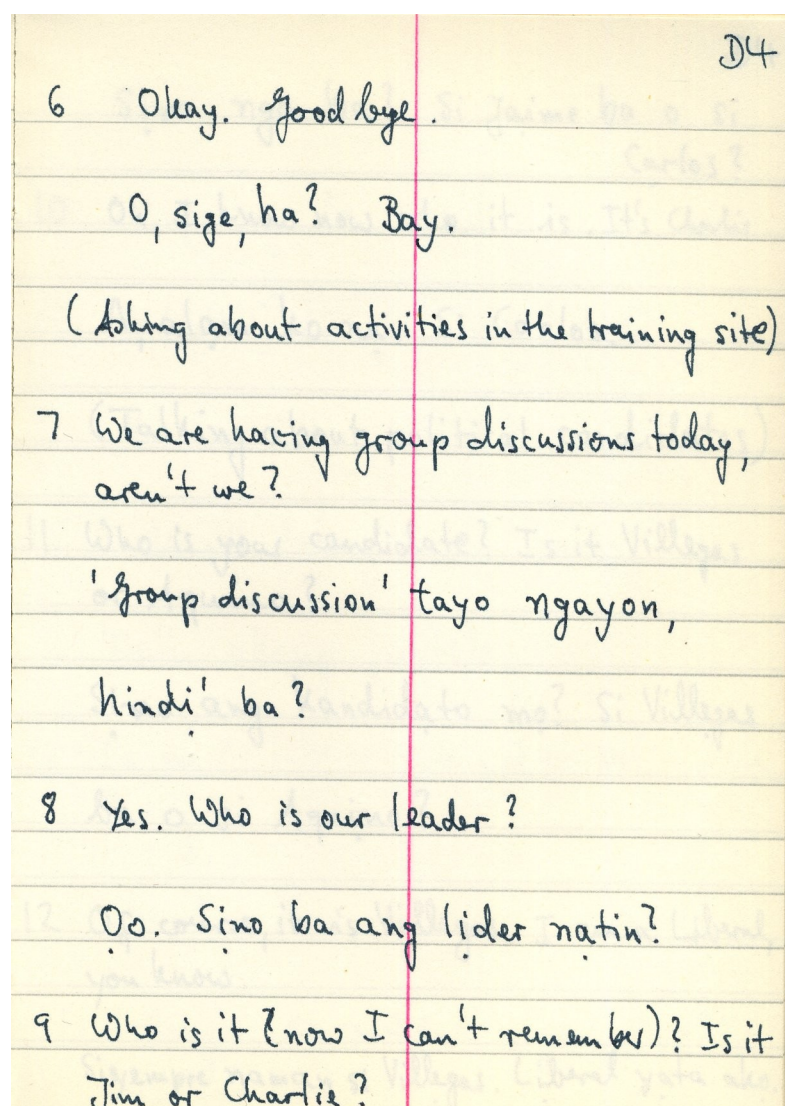 D4
6 Okay. Goodbye.
O, sige, ha? Bay.
(Asking about activities in the training site)
7 We are having group discussions today,
aren't we?
'Group discussion' tayo ngayon,
hindi' ba?
8 Yes. Who is our leader?
Ọo. Sịno ba ang lịder nạtin?
9 Who is it (now I can't remember)? Is it
Jim or Charlie?